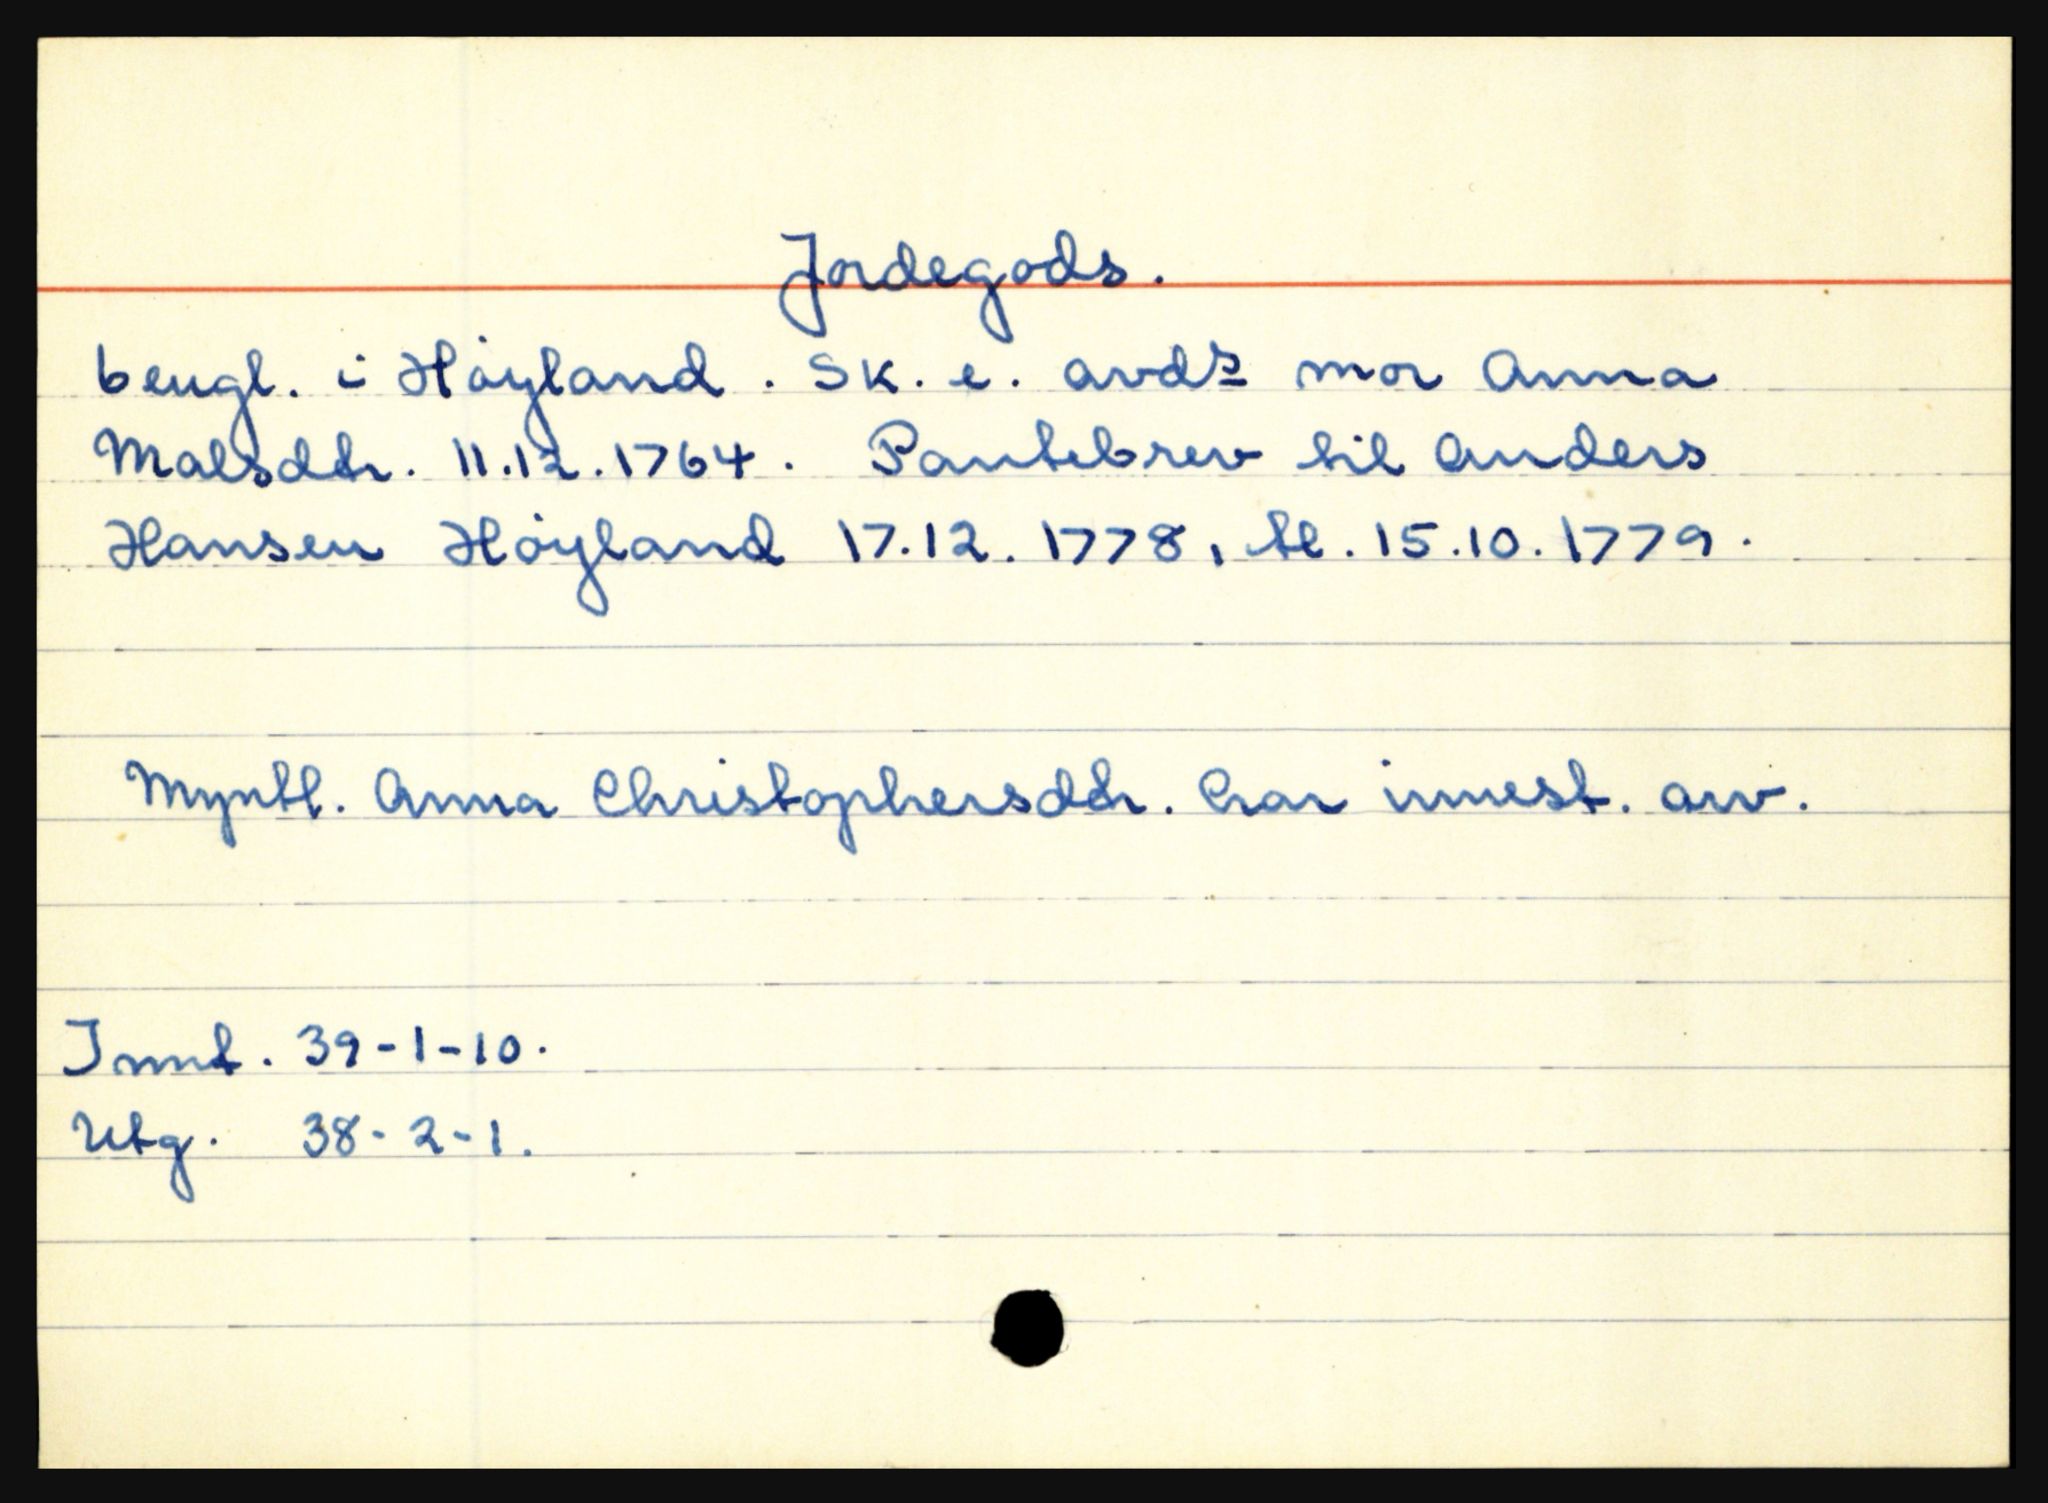 Jordegods.
6 engl. i Høyland. Sk. e. avds mor Anna
Malsdtr. 11.12.1764. Pantebrev til Anders
Hansen Høyland 17.12.1778, tl. 15.10.1779.
Myntl. Anna Christophersdtr. har innest. arv.
Innt. 39-1-10.
Utg. 38-2-1.